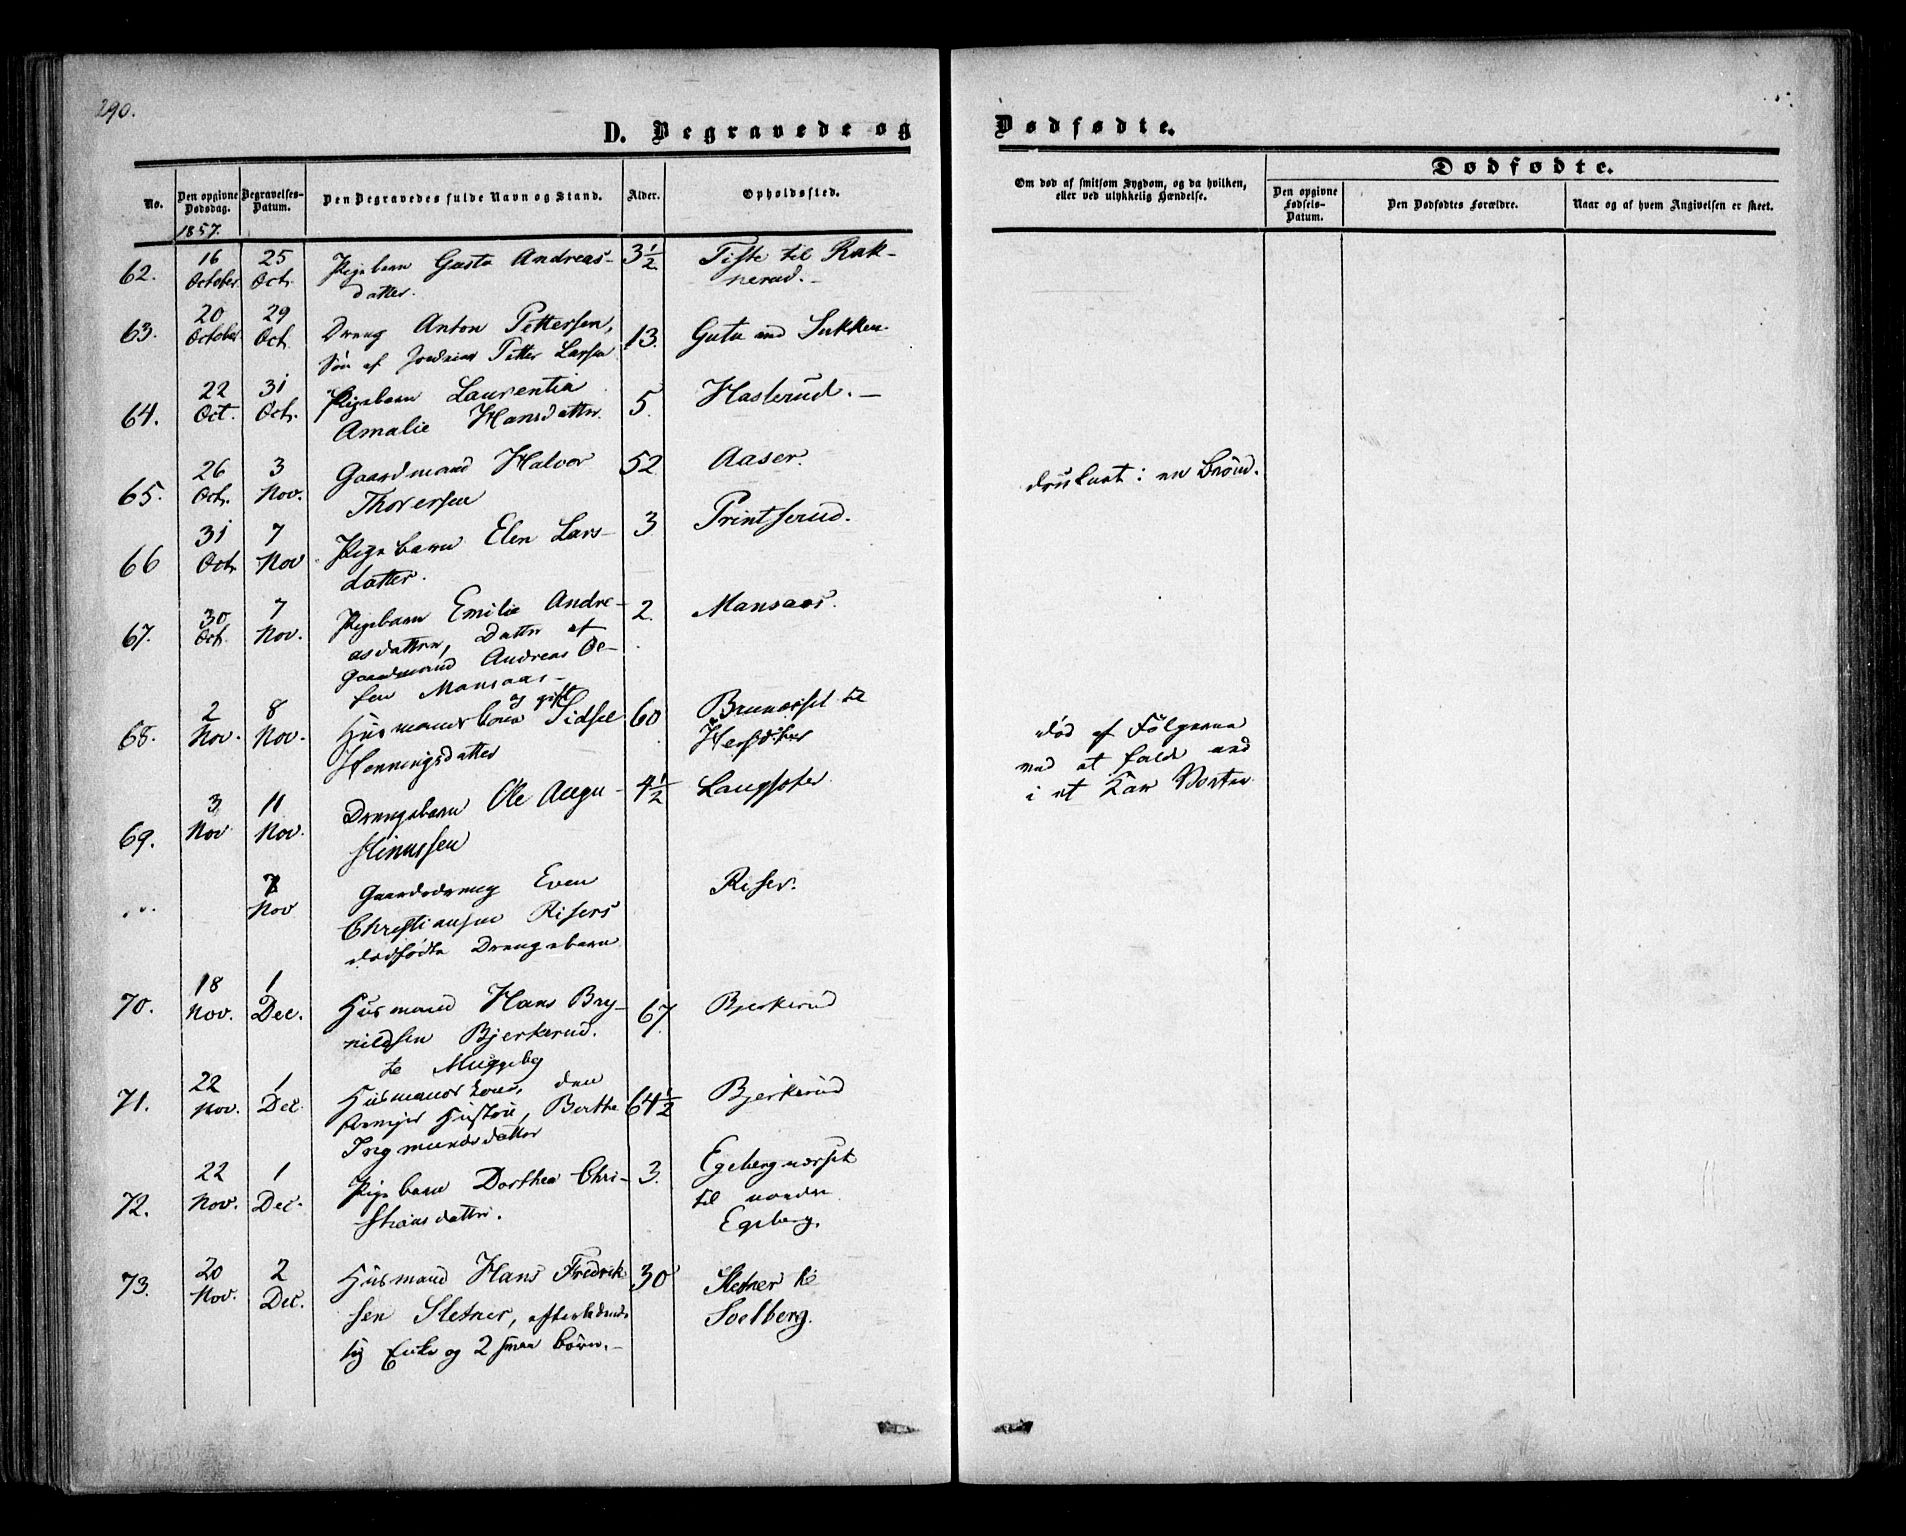 290.
D. Begravede og
Dødfødte.
No.
Den opgivne Dødsdag.
Begravelses-Datum.
Den Begravedes fulde Navn og Stand.
Alder.
Opholdssted.
Om død af smitsom Sygdom, og da hvilken,
eller ved ulykkelig Hændelse.
Dødfødte.
Den opgivne Fødsels-Datum.
Den Dødfødtes Forældre.
Naar og af hvem Angivelsen er skeet.
1857.
62. 16 October 25 Oct. Pigebarn Gusta Andreas- 3½ Tiste til Rak-
datter. nerud.-
63. 20 October 29 Oct. Dreng Anton Pettersen, 13. Gutu
Søn af Petter Larsen
64. 22 Oct. 31 Oct. Pigebarn Laurentia 5. Haslerud.-
Amalie Hansdatter.
65. 26 Oct. 3 Nov. Gaardmand Halvor 52 Aaser. druknet i en Brønd.
Thorersen
66 31 Oct. 7 Nov Pigebarn Elen Lars- 3 Printserud.
datter.
67. 30 Oct. 7 Nov. Pigebarn Emilie Andre- 2. Mansaas.
asdatter, Datter af
Gaardmand Andreas Ol-
sen Mansaas-
68. 2 Nov. 8 Nov. Husmandskone og gift Sidsel 60 død af Følgerne
Henningsdatter ved at falde ned
i et Kar Vand
69. 3 Nov 11 Nov. Drengebarn Ole Augu- 4½
stinussen
7 Nov Gaardsdreng Even Riser.
Christiansen Risers
dødfødte Drengebarn
70. 18 Nov. 1 Dec. Husmand Hans Bry- 67. Bjerkerud
nildsen Bjerkerud.
te Muggeby
71. 22 Nov. 1 Dec. Husmandskone, den 64½ Bjerkerud
Hustru, Berthe
Ingmundsdatter
72. 22 Nov. 1 Dec. Pigebarn Dorthea Chri- 3. Egeberg
stiansdatter. til nordre
Egeberg.
73. 20 Nov. 2 Dec. Husmand Hans Fredrik 30 Sletner te
sen Sletner, efterladende Soelberg.
sig Enke og 2 smaa Børn.-